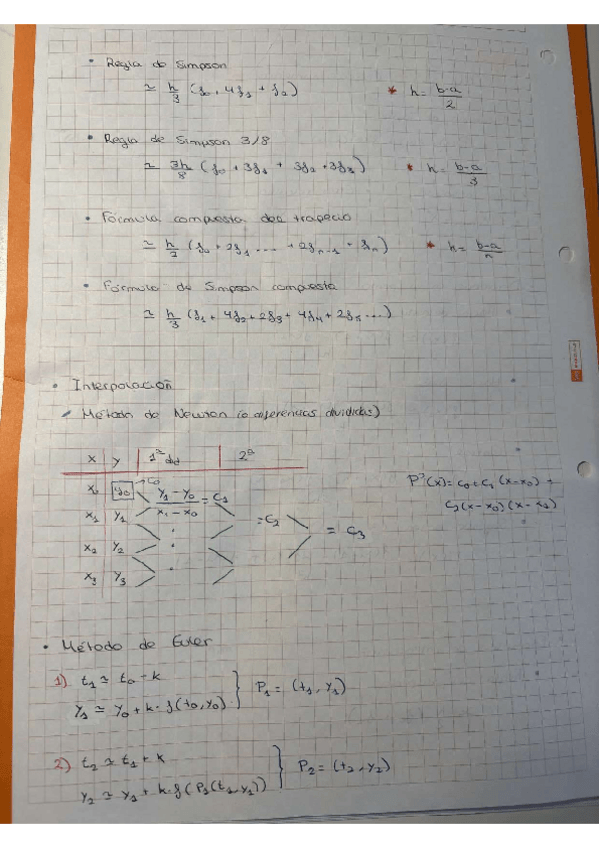 • Regla de Simpson
≃ h/3 (f₀ + 4f₁ + f₂) * h = b-a/2
• Regla de Simpson 3/8
≃ 3h/8 (f₀ + 3f₁ + 3f₂ + 3f₃) * h = b-a/3
• Fórmula compuesta del trapecio
≃ h/2 (f₀ + 2f₁ .... + 2fₙ₋₁ + fₙ) * h = b-a/n
• Fórmula de Simpson compuesta
≃ h/3 (f₁ + 4f₂ + 2f₃ + 4f₄ + 2f₅ ...)
• Interpolación
Método de Newton (o diferencias divididas)
x y 1ª dd 2ª
x₀ y₀ → C₀ y₁ - y₀ / x₁ - x₀ = C₁ P³(x) = C₀ + C₁ (x-x₀) +
x₁ y₁ = C₂ C₂(x-x₀)(x-x₁)
= C₃
x₂ y₂
x₃ y₃
• Método de Euler
1) t₁ ≃ t₀ - k
y₁ ≃ y₀ + k · f(t₀, y₀) } P₁ = (t₁, y₁)
2) t₂ ≃ t₁ + k
y₂ ≃ y₁ + k · f(P₁(t₁, y₁)) } P₂ = (t₂, y₂)